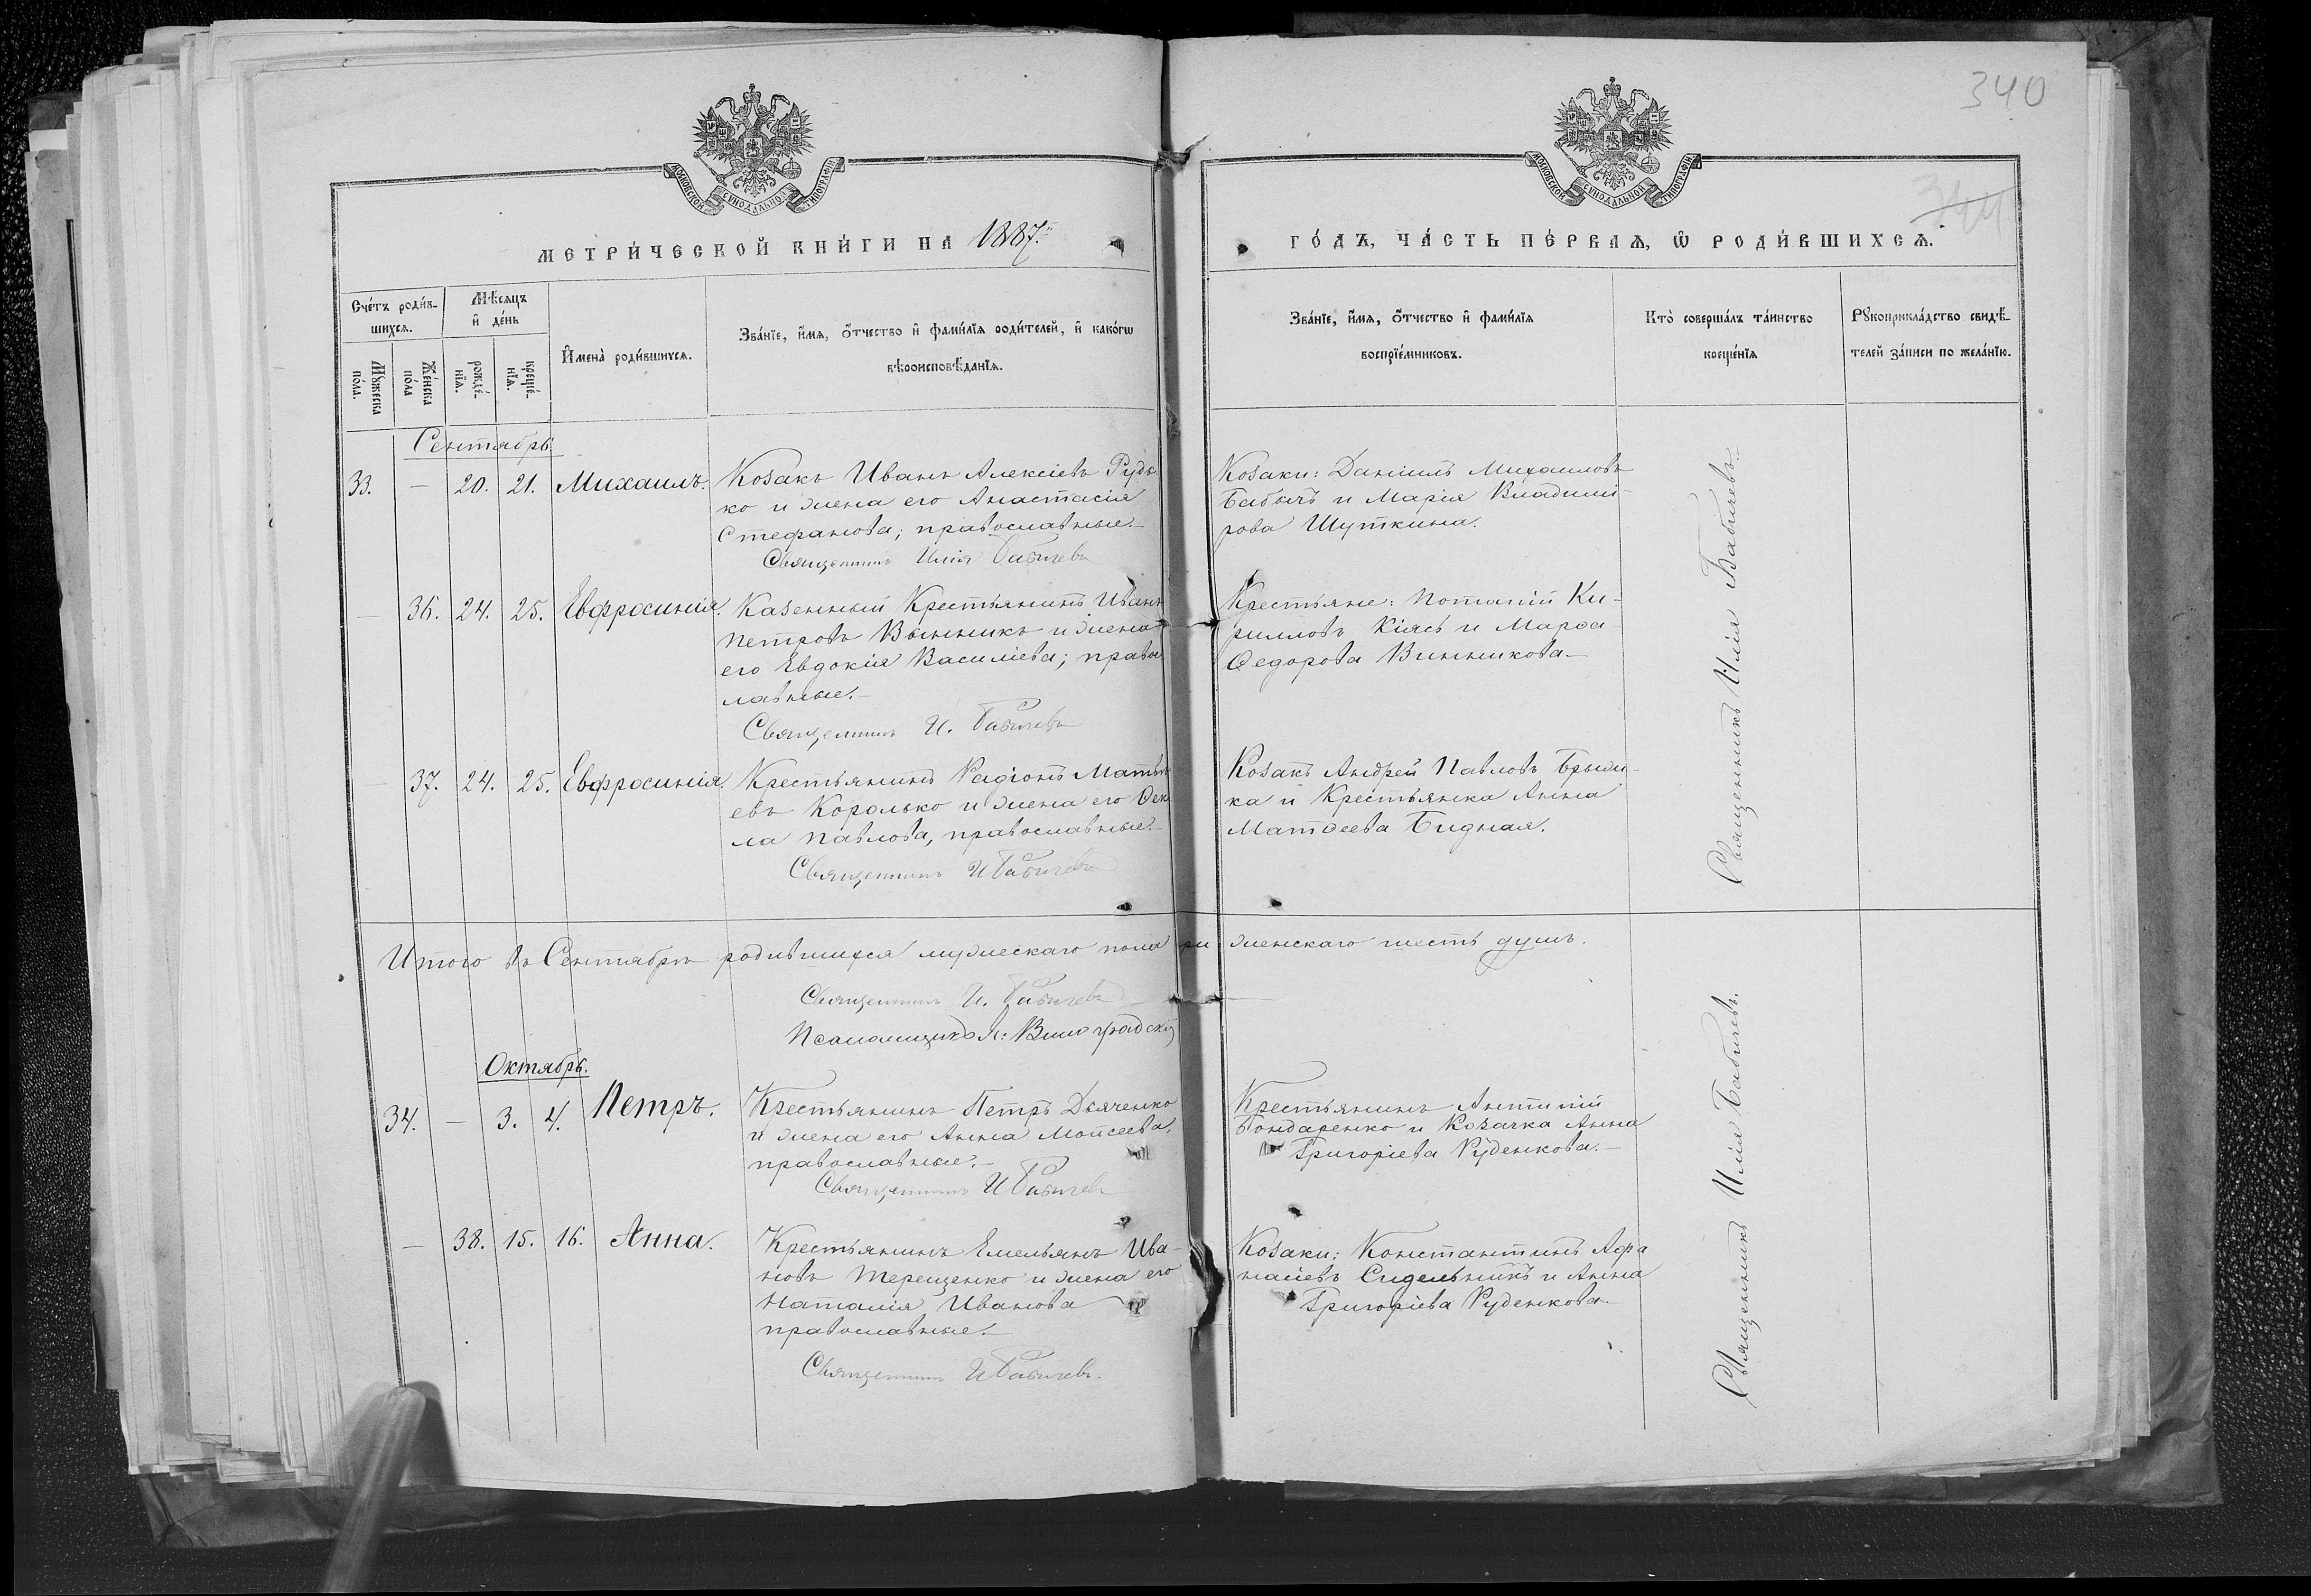 340
344
МОСКОВСКОЙ СѴНОДАЛЬНОЙ ТИПОГРАФІИ
МОСКОВСКОЙ СѴНОДАЛЬНОЙ ТИПОГРАФІИ
МЕТРИ́ЧЕСКОЙ КНИ́ГИ НА 1887.
ГО́ДЪ, ЧА́СТЬ ПЕ́РВАѦ, Ѡ РОДИ́ВШИХСѦ.
Сче́тъ роди́в-
шихсѧ.
Мꙋжеска по́ла.
Же́нска по́ла
Мѣ́сѧцъ
и҆ де́нь
рожде́-
нїѧ.
креще́-
нїѧ.
И҆мена̀ роди́вшихсѧ.
Зва́нїе, и҆́мѧ, ѻ҆́тчество и҆ фами́лїѧ роди́телей, и҆ како́гѡ
вѣроисповѣ́данїѧ.
Зва́нїе, и҆́мѧ, ѻ҆́тчество и҆ фами́лїѧ
воспрїе́мниковъ.
Кто̀ соверша́лъ та́инство
креще́нїѧ
Рꙋкоприкла́дство свидѣ́-
телей за́писи по жела́нїю.
Сентябрь.
33. — 20. 21. Михаилъ. Козакъ Иванъ Алексіевъ Рудь-
ко и жена его Анастасія
Стефанова; православные.—
Священникъ Илія Бабичевъ
Козаки: Даніилъ Михаиловъ
Бабычъ и Марія Владимі-
рова Шуткина.
— 36. 24. 25. Евфросинія. Казенный Крестьянинъ Иванъ
Петровъ Винникъ и жена
его Евдокія Василіева; правос
лавные.—
Священникъ И. Бабичевъ
Крестьяне: Потапій Ки-
рилловъ Кіясъ и Марѳа
Ѳедорова Винникова.—
— 37. 24. 25. Евфросинія. Крестьянинъ Радіонъ Матвѣ
евъ Королько и жена его Ѳек
ла Павлова, православные.—
Священникъ И Бабичевъ
Козакъ Андрей Павловъ
ка и Крестьянка Анна
Матѳеева Бидная.
Священникъ Илія Бабичевъ.
Итого въ Сентябрѣ родившихся мужескаго пола три женскаго шесть душъ.
Священникъ И. Бабичевъ
Псаломщикъ Виноградскій
Октябрь.
34. — 3. 4. Петръ. Крестьянинъ Петръ Дьяченко
и жена его Анна Моисеева,
православные.—
Священникъ И Бабичевъ
Крестьянинъ Антипій
Бондаренко и Козачка Анна
Григоріева Руденкова.—
— 38. 15. 16. Анна. Крестьянинъ Емельянъ Ива-
новъ Терещенко и жена его
Наталія Иванова
православные.—
Священникъ И Бабичевъ.
Козаки: Константинъ Афа
насіевъ Сидельникъ и Анна
Григоріева Руденкова.
Священникъ Илія Бабичевъ.